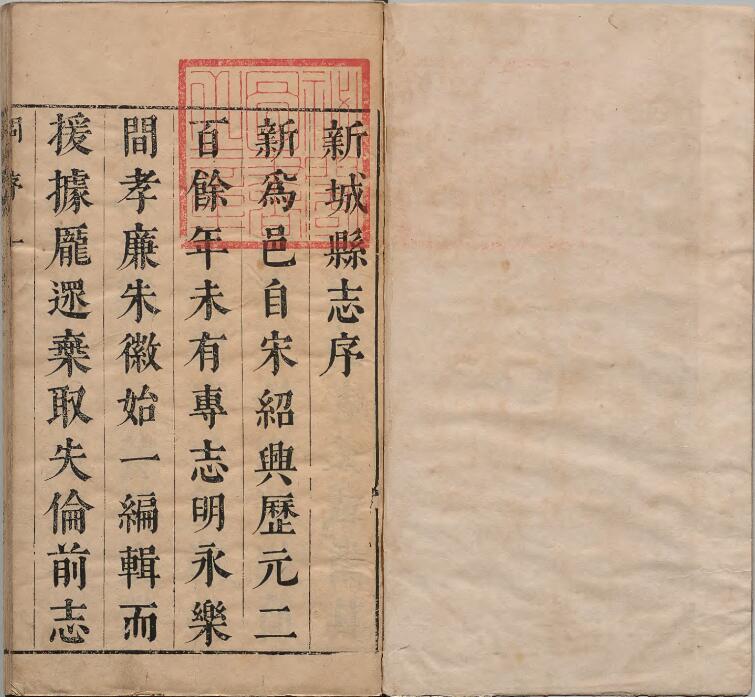 新城縣志序
新為邑自宋紹興歷元二
百餘年未有專志明永樂
間孝廉朱徽始一編輯而
援據厖遝棄取失倫前志